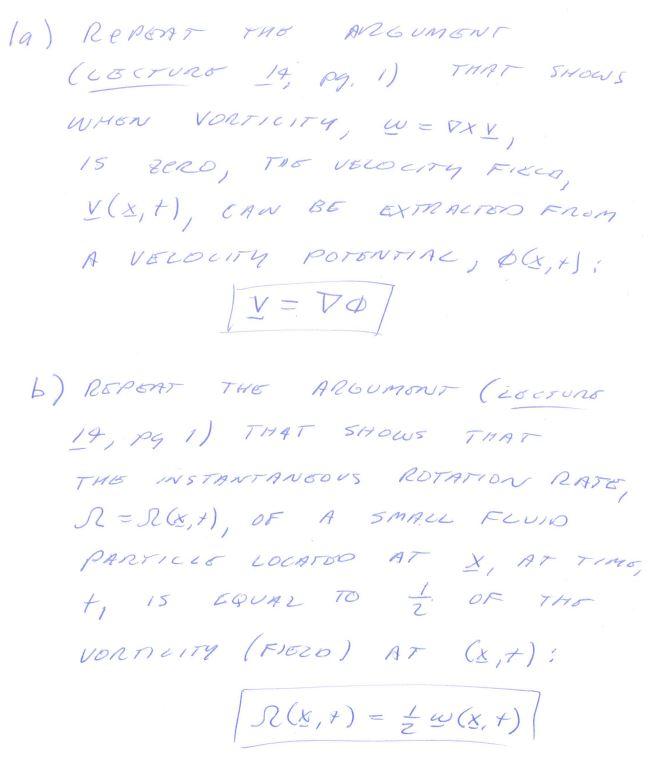 1a) REPEAT THE ARGUMENT
(LECTURE 14, pg. 1) THAT SHOWS
WHEN VORTICITY, ω = ∇×v,
IS ZERO, THE VELOCITY FIELD,
v(x,t), CAN BE EXTRACTED FROM
A VELOCITY POTENTIAL, φ(x,t):
v = ∇φ
b) REPEAT THE ARGUMENT (LECTURE
14, pg 1) THAT SHOWS THAT
THE INSTANTANEOUS ROTATION RATE,
Ω = Ω(x,t), OF A SMALL FLUID
PARTICLE LOCATED AT x, AT TIME,
t, IS EQUAL TO 1/2 OF THE
VORTICITY (FIELD) AT (x,t):
Ω(x,t) = 1/2 ω(x,t)